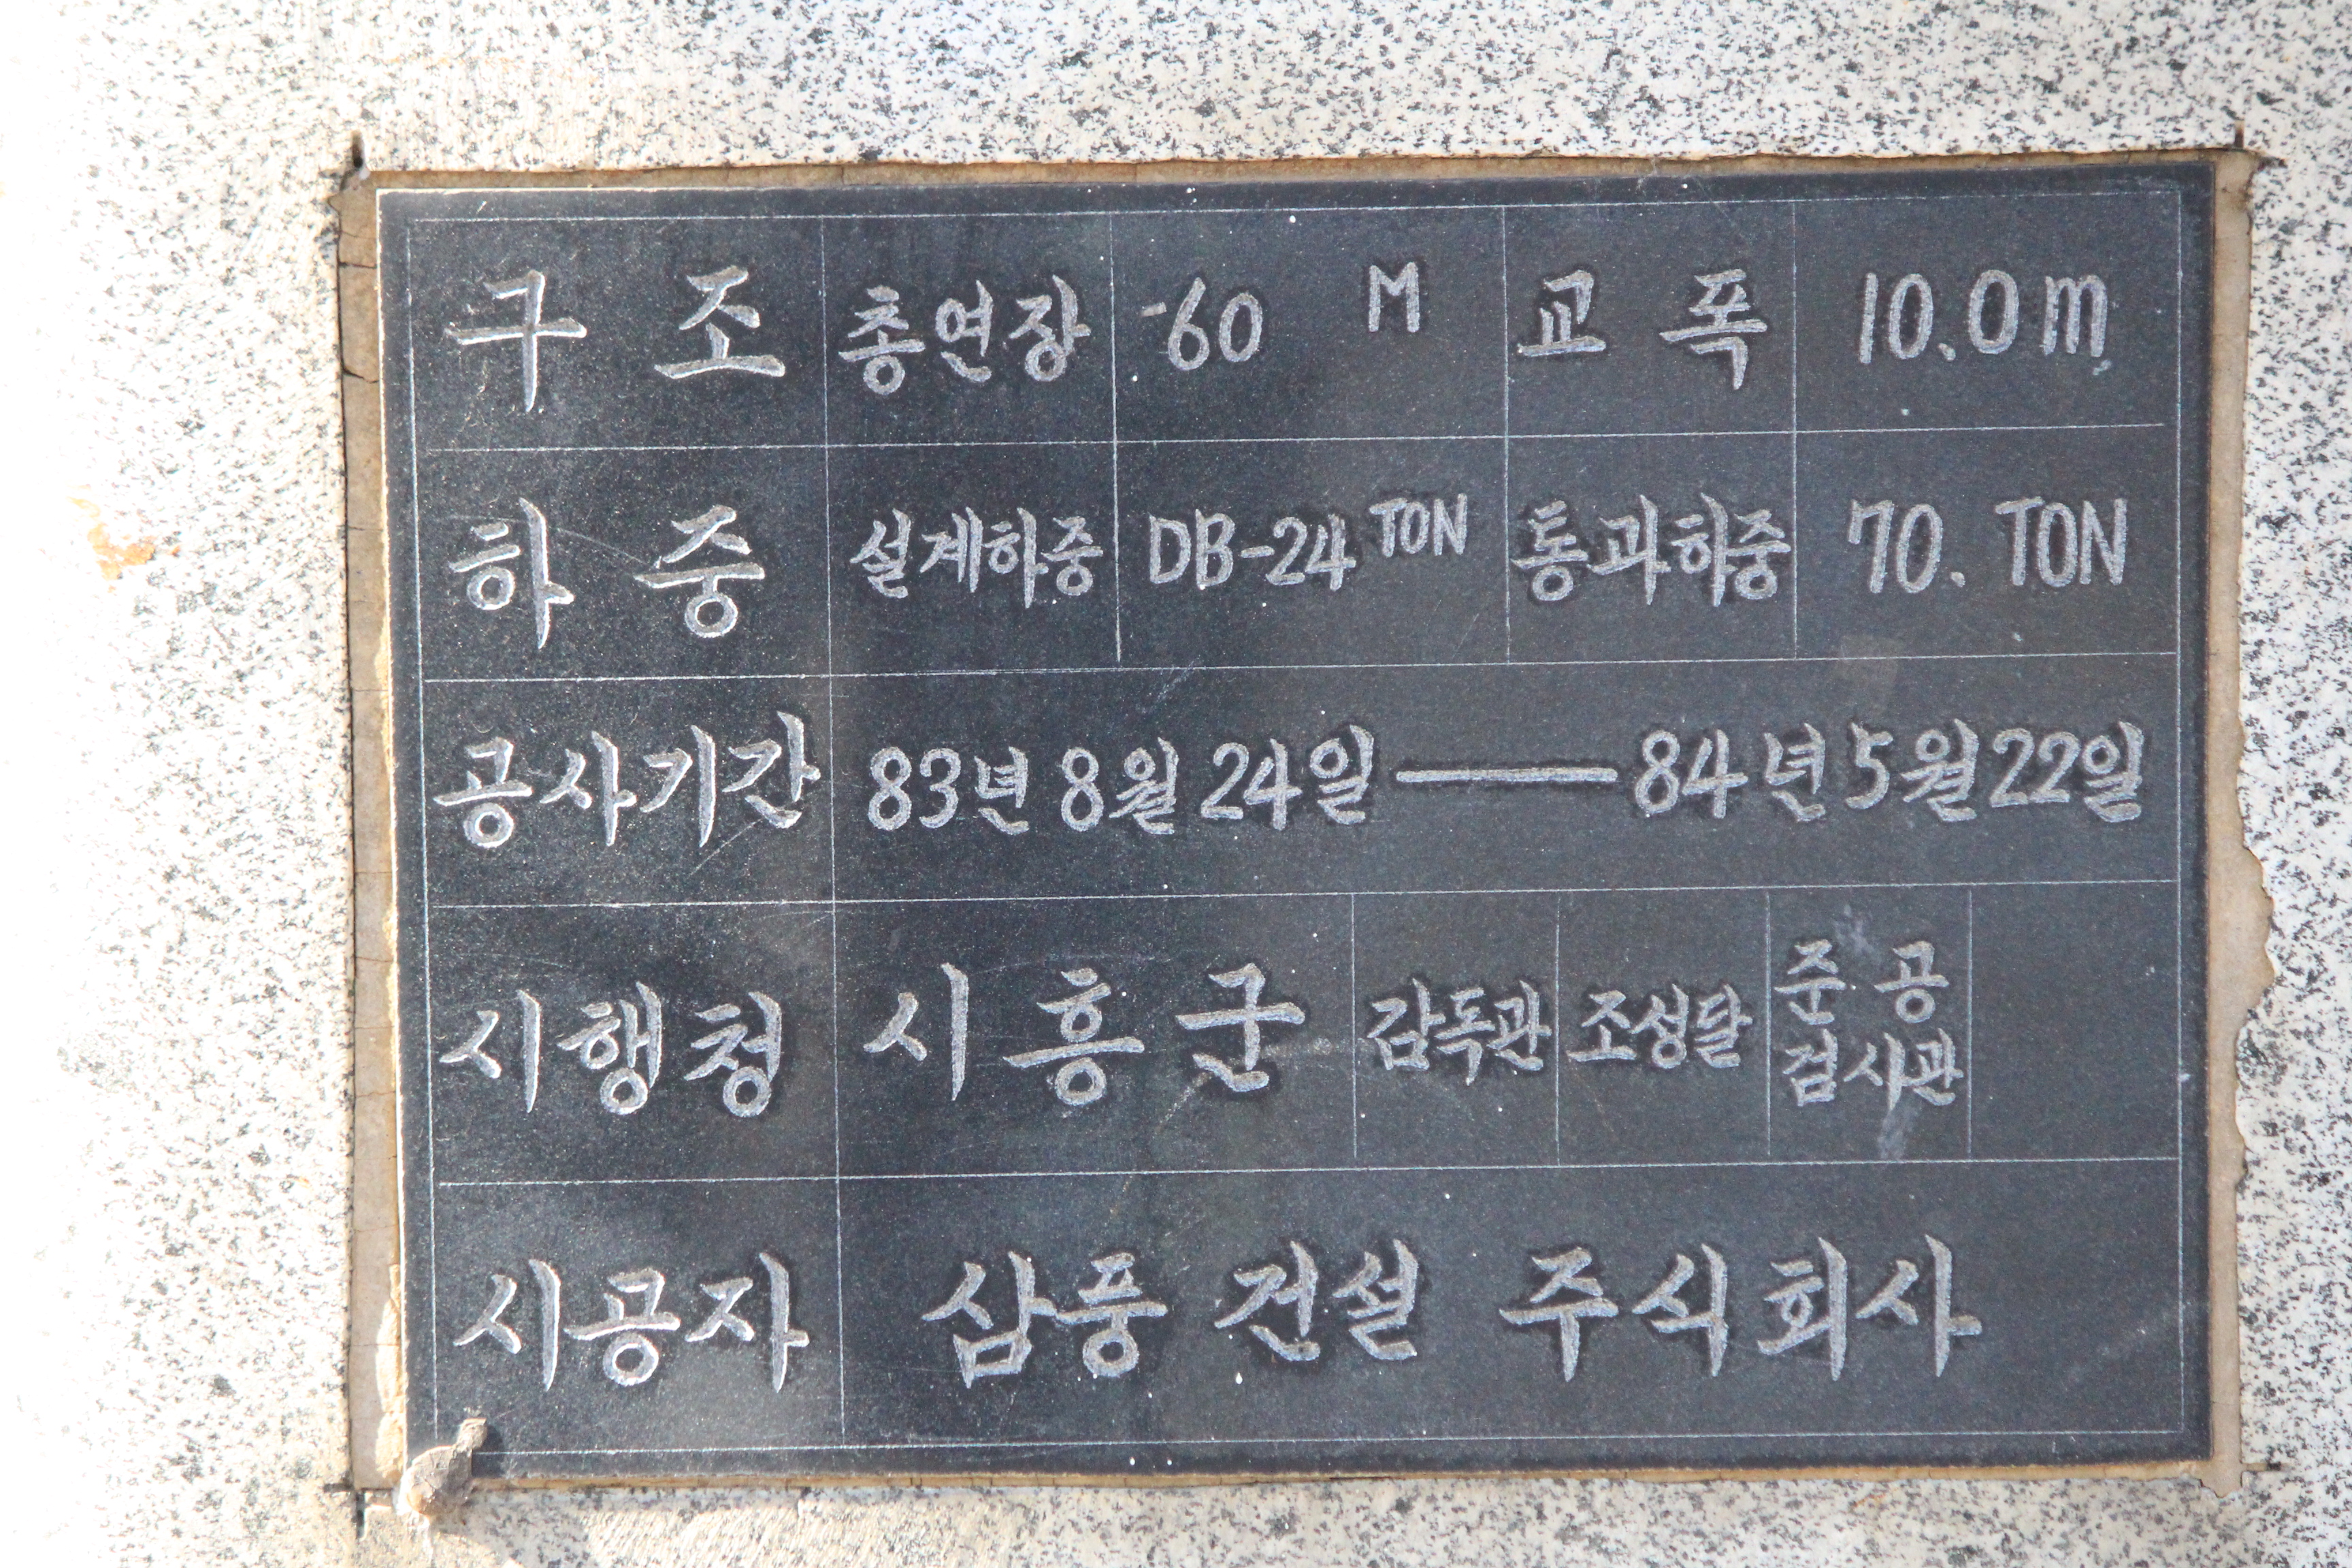 구 조 총연장 60 M 교 폭 10.0m
하 중 설계하중 DB-24 TON 통과하중 70. TON
공사기간 83년 8월 24일 — 84년 5월 22일
시행청 시흥군 감독관 조성달 준공 검사관
시공자 삼풍 건설 주식회사